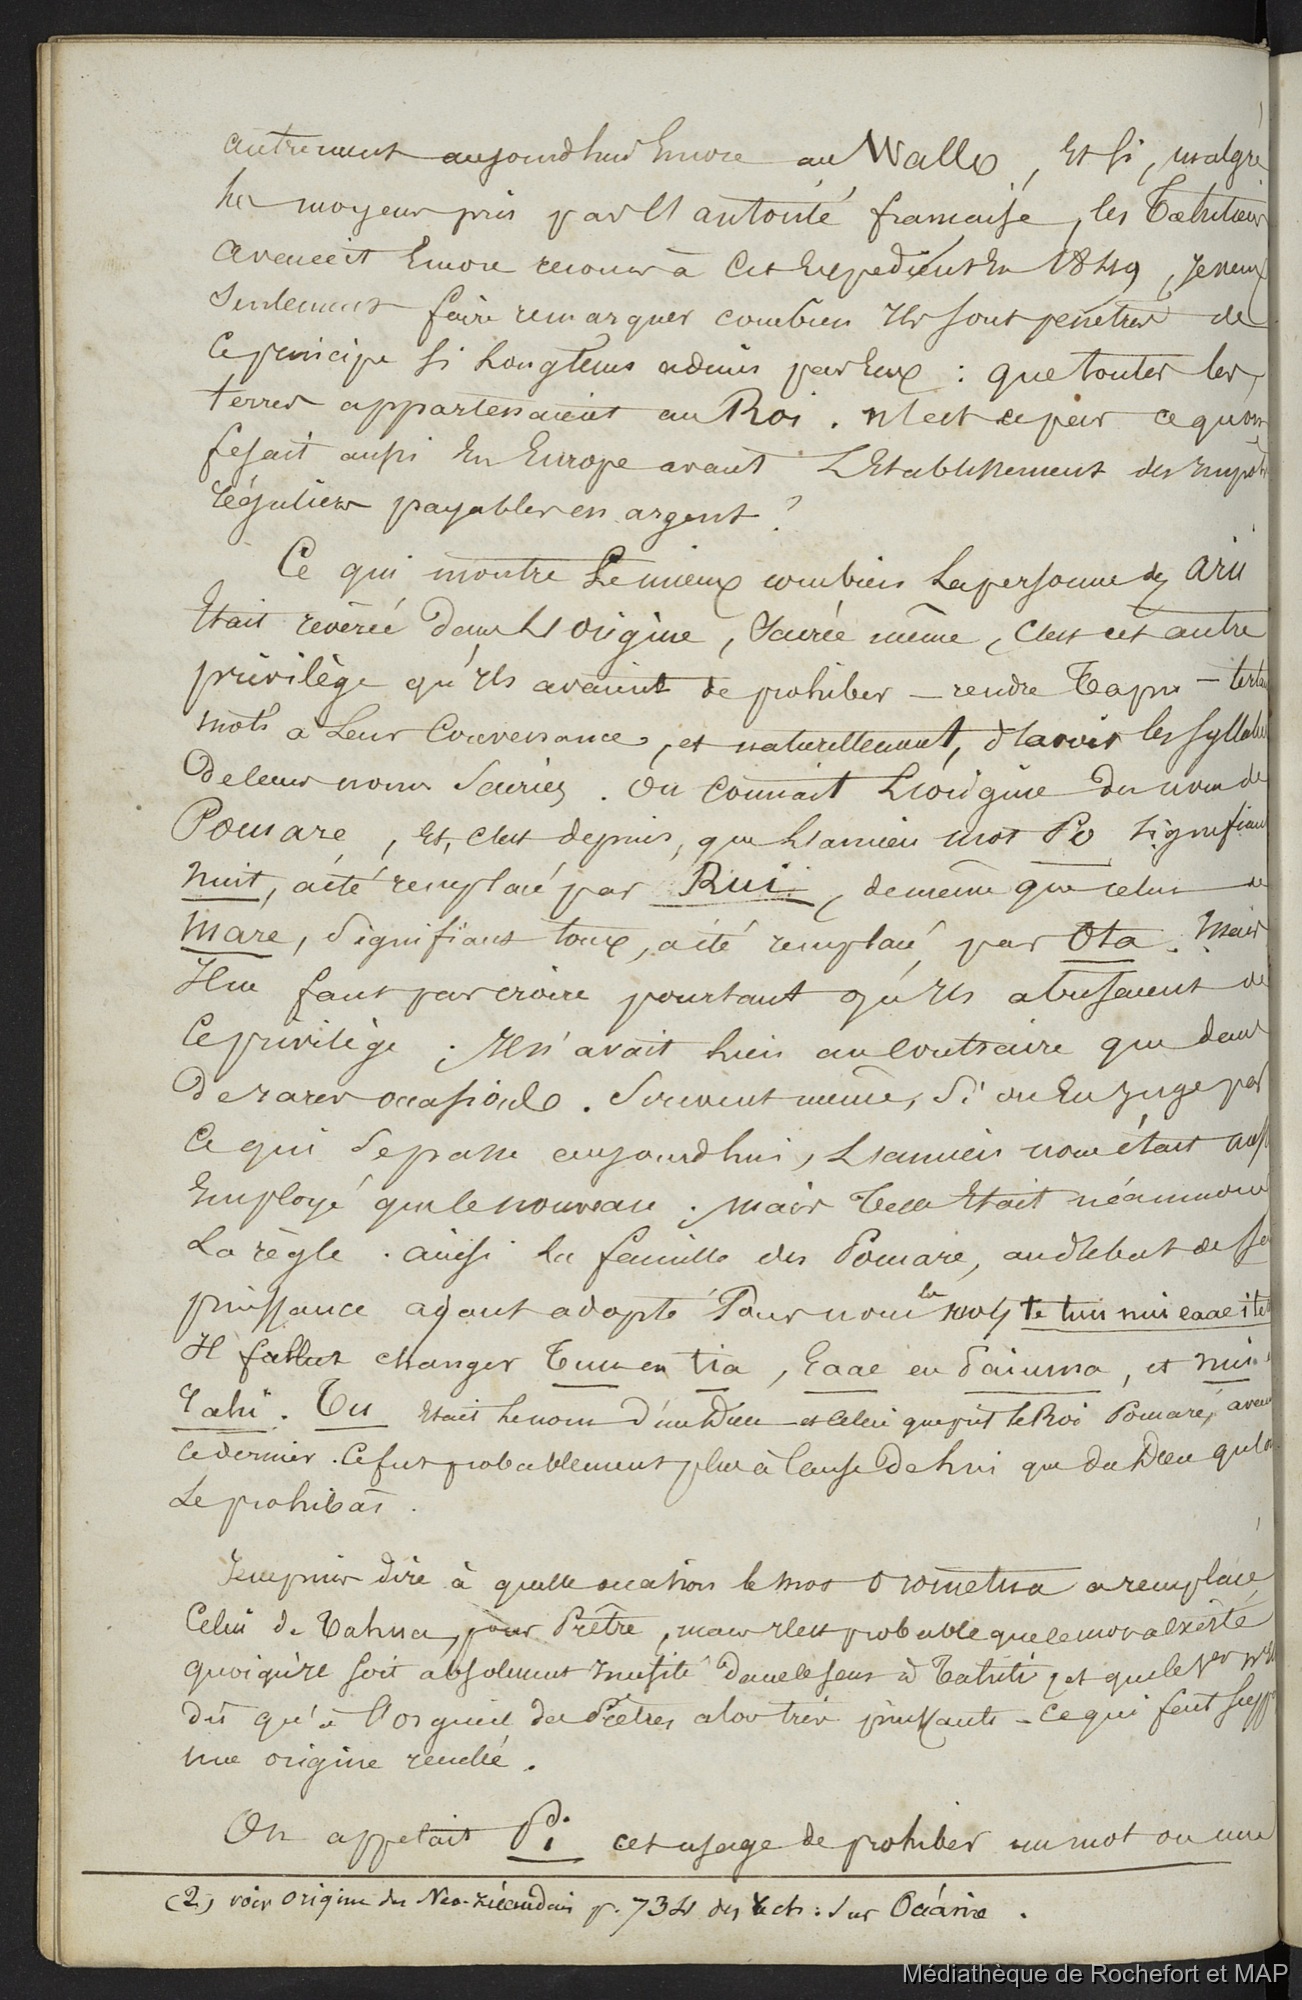 autrement aujourd'hui Encore au Wallo, Et si, malgré
les moyens pris par l'autorité française, les Tahitiens
avaient Encore recours à Cet Expédient En 1849, Je veux
Seulement faire remarquer combien Ils sont pénétrés de
Ce principe si Longtems admis par Eux : que toutes les
terres appartenaient au Roi. n'est ce pas ce qu'on
fesait aussi En Europe avant L'Etablissement des Impôts
réguliers payables en argent ?
Ce qui montre Le mieux combien La personne des Arii
Etait révérée dans L'origine, Sacrée même, C'est cet autre
privilège qu'Ils avaient de prohiber — rendre Tapu — certains
mots à Leur Convenance, et naturellement, d'avoir les syllabes
de leurs noms Sacrées. On Connait L'origine du nom de
Pomare, Et, c'est depuis, que L'ancien mot Po signifiant
nuit, a été remplacé par Rui, de même que celui de
Mare, Signifiant toux, a été remplacé par Ota. Mais
Il ne faut pas croire pourtant qu'Ils abusaient de
Ce privilège ; Il n'avait lieu au Contraire que dans
De rares occasions. Souvent même, Si on En Juge par
Ce qui Se passe aujourd'hui, L'ancien nom était aussi
Employé que le nouveau. Mais telle Etait néanmoins
La règle. ainsi La famille des Pomare, au début de sa
puissance ayant adopté Pour nom les mots te tuu nui eaae i te
Il fallut changer Tuu en tia, Eaae en Paiuma, et nui en
rahi. Tu Etait le nom d'un Dieu et Celui que prit le Roi Pomare, avant
Ce dernier. Ce fut probablement plus à Cause De Lui que du Dieu qu'on
Le prohibât.
Je ne puis dire à quelle occasion le mot orometua a remplacé
Celui de Tahua, pour Prêtre, mais Il est probable que ce mot a existé
quoiqu'il soit absolument Inusité dans le sens à Tahiti, et que le 1er n'est
dû qu'à l'orgueil des Prêtres alors très puissants — Ce qui fait supp
une origine reculée.
On appelait Pi cet usage de prohiber un mot ou une
(2) voir origine des Neo-zélandais p. 734 des Rech : Sur Océanie.
Médiathèque de Rochefort et MAP